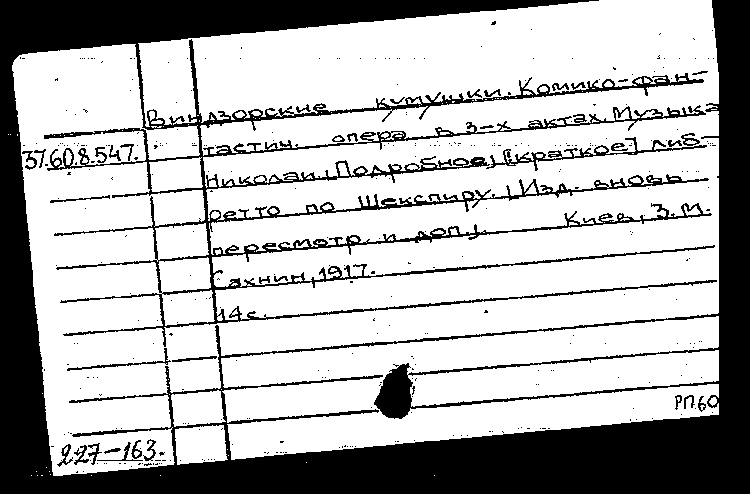 Виндзорские кумушки. Комико-фан-
37.60.8.547.
тастич. опера в 3-х актах. Музыка
Николаи. [Подробное] [краткое] либ-
ретто по Шекспиру. [Изд. вновь
пересмотр. и доп.]. Киев, З.М.
Сахнин, 1917.
14 с.
РП.60
227-163.